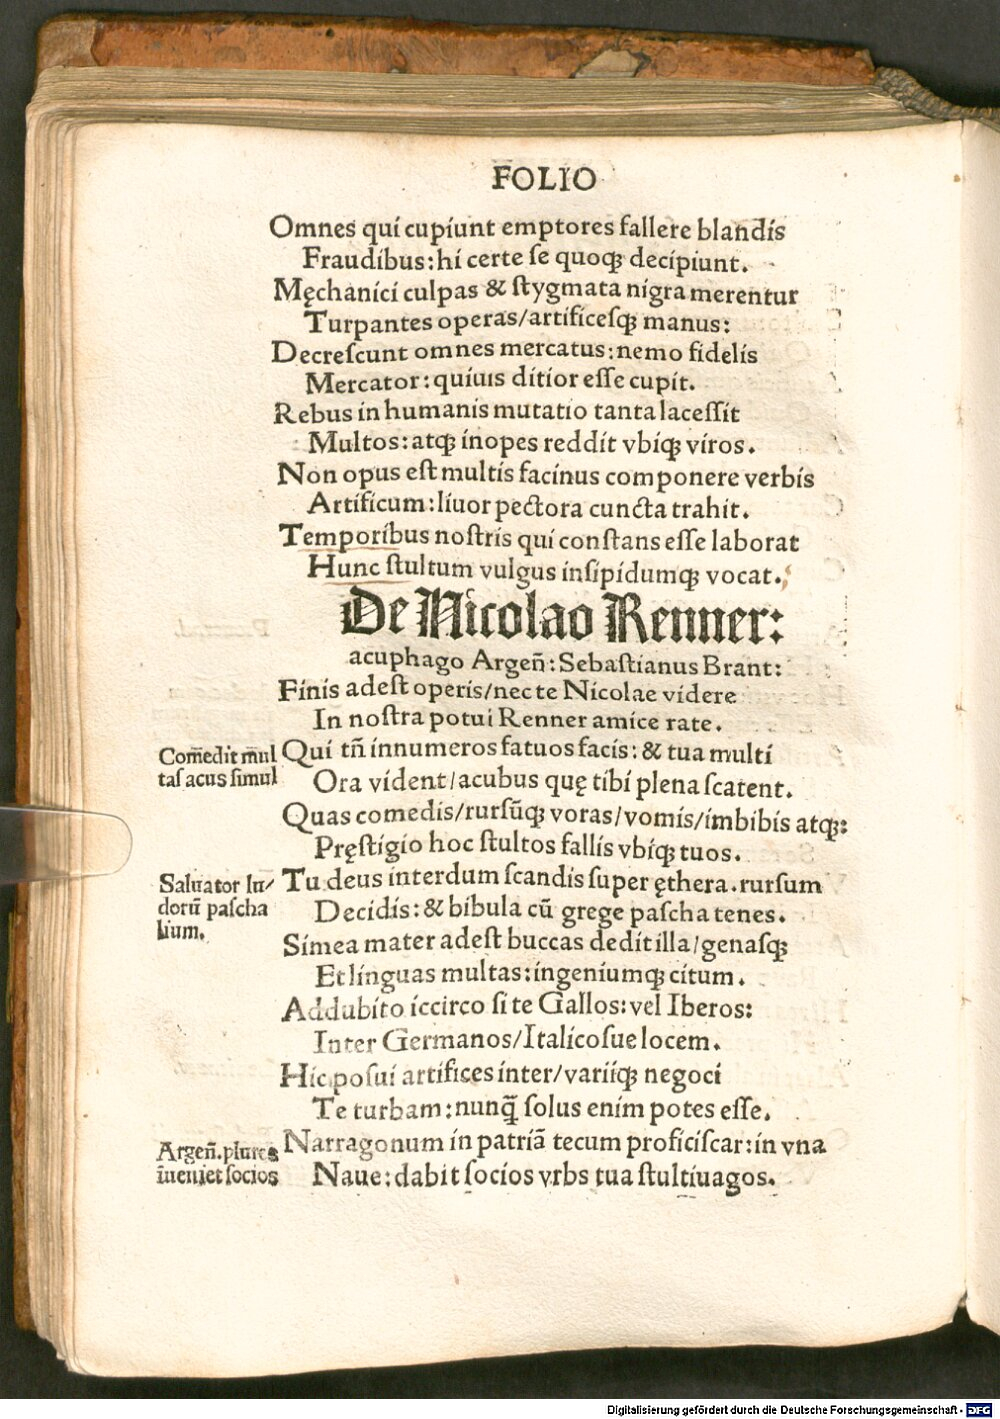 FOLIO
Omnes qui cupiunt emptores fallere blandis
Fraudibus: hi certe ſe quoqꝫ decipiunt.
Męchanici culpas & ſtygmata nigra merentur
Turpantes operas/artificeſqꝫ manus:
Decreſcunt omnes mercatus: nemo fidelis
Mercator: quiuis ditior eſſe cupit.
Rebus in humanis mutatio tanta laceſſit
Multos: atqꝫ inopes reddit vbiqꝫ viros.
Non opus eſt multis facinus componere verbis
Artificum: liuor pectora cuncta trahit.
Temporibus noſtris qui conſtans eſſe laborat
Hunc ſtultum vulgus inſipidumqꝫ vocat.
De Nicolao Renner:
acuphago Argen̄: Sebaſtianus Brant:
Finis adeſt operis/nec te Nicolae videre
In noſtra potui Renner amice rate.
Com̄edit mul
tas acus simul
Qui tn̄ innumeros fatuos facis: & tua multi
Ora vident/acubus quę tibi plena ſcatent.
Quas comedis/rurſūqꝫ voras/vomis/imbibis atqꝫ:
Pręſtigio hoc ſtultos fallis vbiqꝫ tuos.
Saluator lu/
dorū paſcha
lium.
Tu deus interdum ſcandis ſuper ęthera. rurſum
Decidis: & bibula cū grege paſcha tenes.
Simea mater adeſt buccas dedit illa/genaſqꝫ
Et linguas multas: ingeniumqꝫ citum.
Addubito iccirco ſi te Gallos: vel Iberos:
Inter Germanos/Italicoſue locem.
Hic poſui artifices inter/variiqꝫ negoci
Te turbam: nunq̄ ſolus enim potes eſſe.
Argen̄. plures
īueniet ſocios
Narragonum in patriā tecum proficiſcar: in vna
Naue: dabit ſocios vrbs tua ſtultiuagos.
Digitalisierung gefördert durch die Deutsche Forschungsgemeinschaft - DFG